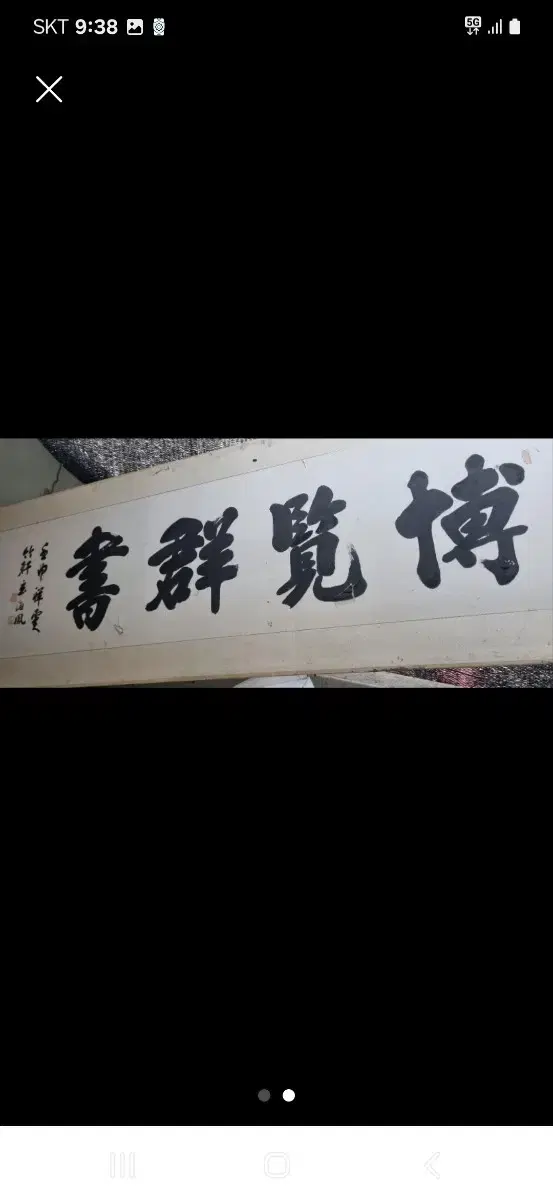 SKT 9:38
5G
博覽群書
壬申
竹軒